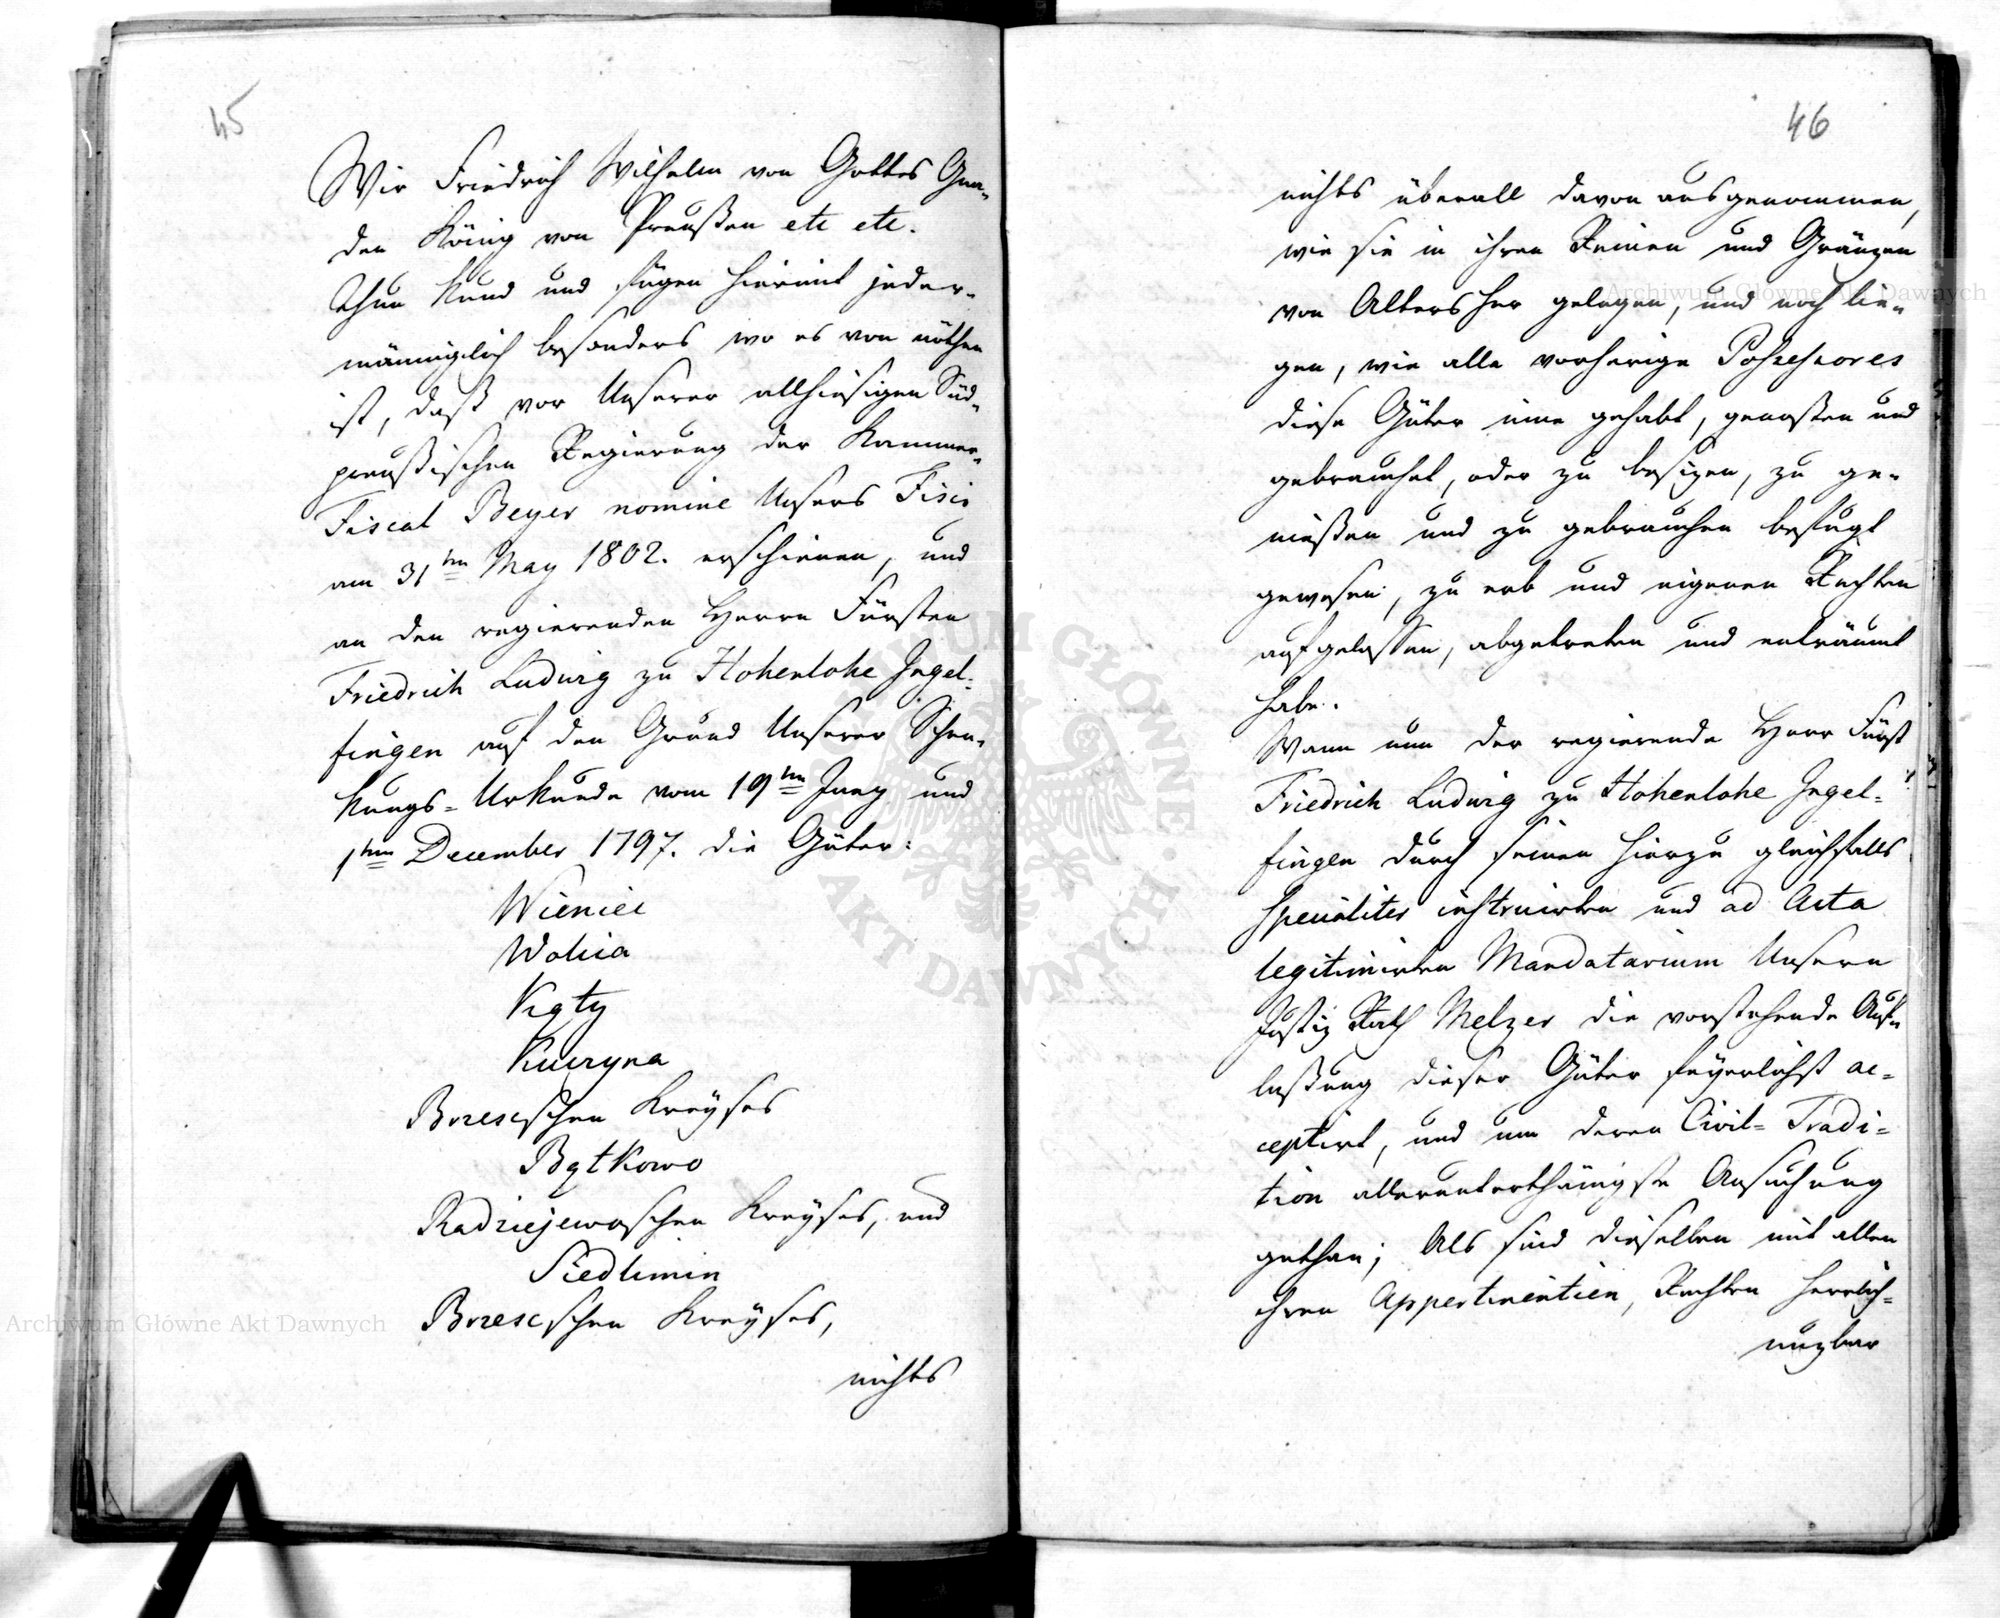 45
Wir Friedrich Wilhelm von Gottes Gna-
den König von Preußen etc etc.
Thun kund und fügen hiermit jeder-
männiglich besonders wo es von nöthen
ist, daß vor Unserer allhiesigen Süd-
preußischen Regierung der Kammer-
Fiscal Beyer nomine Unsers Fisci
am 31ten May 1802. erschienen, und
an den regierenden Herrn Fürsten
Friedrich Ludwig zu Hohenlohe Ingel-
fingen auf den Grund Unserer Schen-
kungs-Urkunde vom 19ten Juny und
1ten December 1797. die Güter:
Wieniec
Wolica
Kąty
Kuczyna
Brzescschen Kreyses
Bątkowo
Radziejewoschen Kreyses, und
Siedlimin
Brzescschen Kreyses,
nichts
46
nichts überall davon ausgenommen,
wie sie in ihren Reinen und Gränzen
von Alters her gelegen, und noch lie-
gen, wie alle vorherige Possessores
diese Güter inne gehabt, genoßen und
gebrauchet, oder zu besizen, zu ge-
nießen und zu gebrauchen befugt
gewesen, zu erb und eigenen Rechten
aufgelassen, abgetreten und enträumt
habe.
Wann nun der regierende Herr Fürst
Friedrich Ludwig zu Hohenlohe Ingel-
fingen durch seinen hierzu gleichfalls
specialiter instruirten und ad Acta
legitimirten Mandatarium Unsern
Justiz Rath Melzer die vorstehende Auf-
laßung dieser Güter feyerlichst ac-
ceptirt, und um deren Civil-Tradi-
tion allerunterthänigste Ansuchung
gethan; Als sind dieselben mit allen
ihren Appertinentien, Rechten herrlich-
nuzbar
Archiwum Główne Akt Dawnych
Archiwum Główne Akt Dawnych
ARCHIWUM GŁÓWNE AKT DAWNYCH